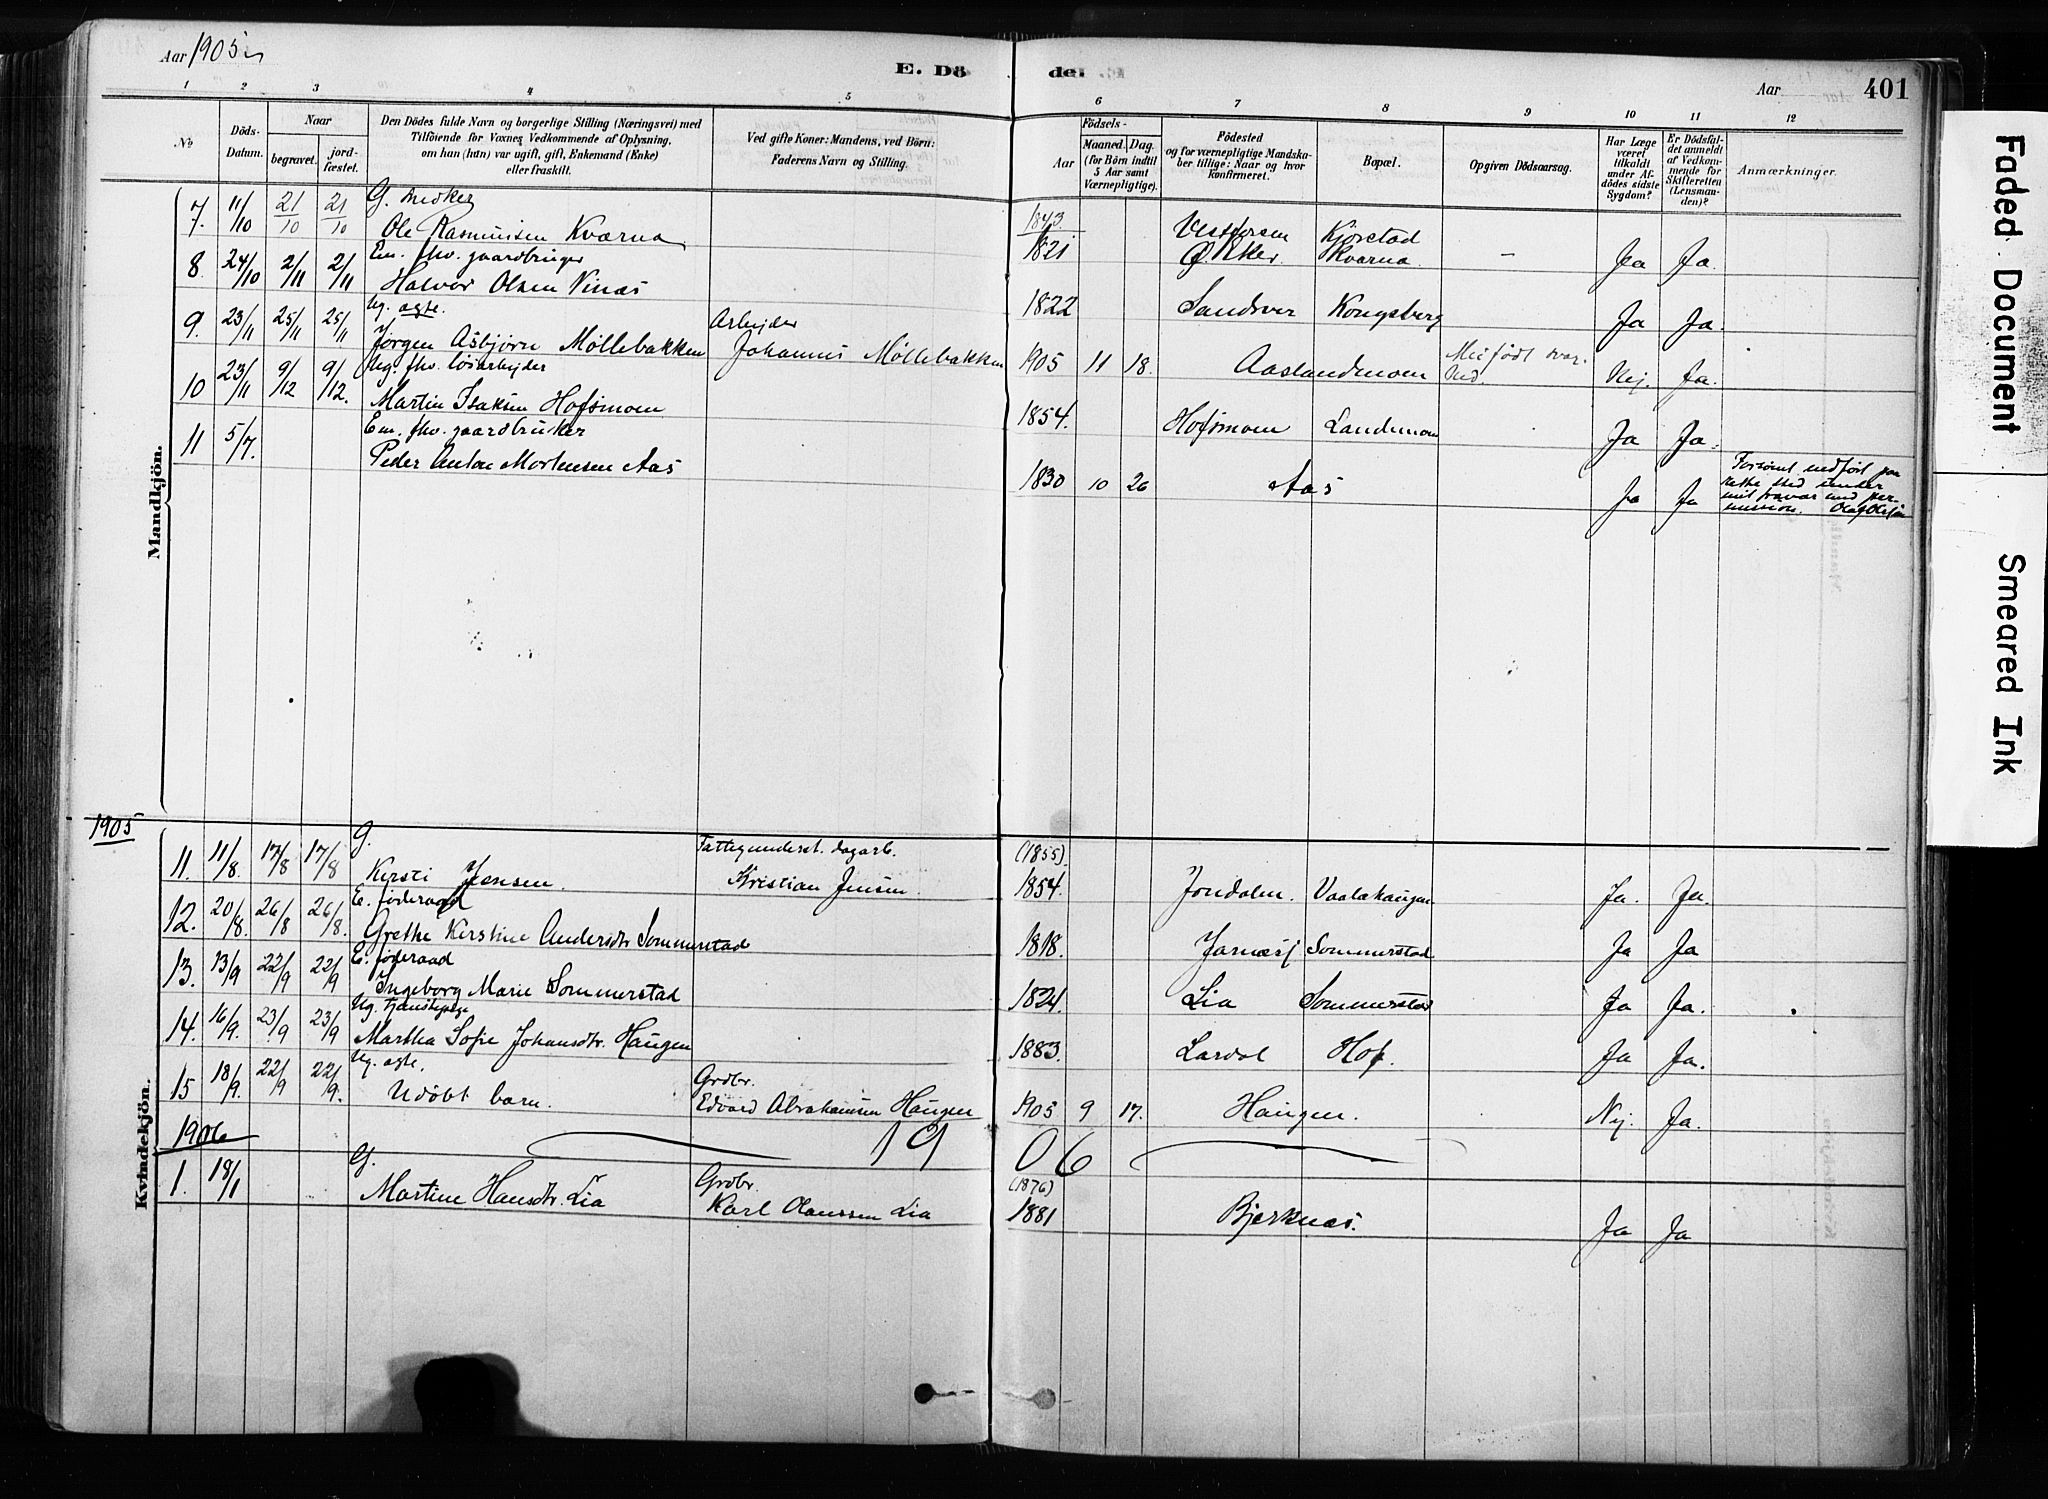 Aar 1905
E. Dö
de.
Aar
401
1 2 3 4 5 6 7 8 9 10 11 12
No
Döds-
Datum.
Naar
begravet.
jord-
fæstet.
Den Dödes fulde Navn og borgerlige Stilling (Næringsvei) med
Tilföiende for Voxnes Vedkommende af Oplysning,
om han (hun) var ugift, gift, Enkemand (Enke)
eller fraskilt.
Ved gifte Koner: Mandens, ved Börn:
Faderens Navn og Stilling.
Födsels-
Aar
Maaned. Dag.
(for Börn indtil
5 Aar samt
Værnepligtige).
Födested
og for værnepligtige Mandska-
ber tillige: Naar og hvor
Konfirmeret.
Bopæl.
Opgiven Dödsaarsag.
Har Læge
været
tilkaldt
under Af-
dödes sidste
Sygdom?
Er Dödsfal-
det anmeldt
af Vedkom-
mende for
Skifteretten
(Lensman-
den)?
Anmærkninger.
Mandkjön.
7. 11/10 21/10 21/10 G.
Ole Rasmussen Kværna
1843.
1821 Ø. Eker. Kjørstad
Kværna. – Ja Ja.
8. 24/10 2/11 2/11 Em. fhv. gaardbruger
Halvor Olsen Vinæs
1822 Sandsvær Kongsberg Ja Ja.
9. 23/11 25/11 25/11 Ug. ægte.
Jørgen Asbjørn Møllebakken
Arbejder
Johannes Møllebakken
1905 11 18. Aaslandmoen Medfødt svag-
hed. Nej. Ja.
10 23/11 9/12 9/12. Ug. fhv. løsarbejder
Martin Isaksen Hofsmoen
1854. Hofsmoen Landemoen Ja Ja.
11 5/7. Em. fhv. gaardbruker
Peder Anton Mortensen Aas
1830 10 26 Aas Ja Ja
Forsømt indført paa
rette sted under
mit fravær med per-
mission. Olaf Olafsen
1905
Kvindekjön.
11. 11/8. 17/8 17/8 G.
Kirsti Jensen.
Fattigunderst. dagarb.
Kristian Jensen.
(1855)
1854. Jondalen. Vaalehaugen Ja. Ja.
12. 20/8. 26/8 26/8. E. føderaad
Grethe Kirstine Andersdtr Sommerstad
1818. Jarnæs Sommerstad Ja Ja
13. 13/9 22/9 22/9 E. føderaad
Ingeborg Marie Sommerstad
1824. Lia Sommerstad Ja Ja.
14. 16/9. 23/9 23/9 Ug. tjenestepige
Martha Sofie Johansdtr. Haugen
1883. Lardal Hof. Ja Ja.
15 18/9. 22/9 22/9. Ug. ægte.
Udøbt barn.
Grdbr.
Edvard Abrahamsen Haugen
1905 9 17. Haugen. Nej. Ja.
1906 1906
1. 18/1 G.
Martine Hansdtr. Lia
Grdbr.
Karl Olaussen Lia
(1876)
1881 Bjerknæs. Ja Ja
Faded Document
Smeared Ink